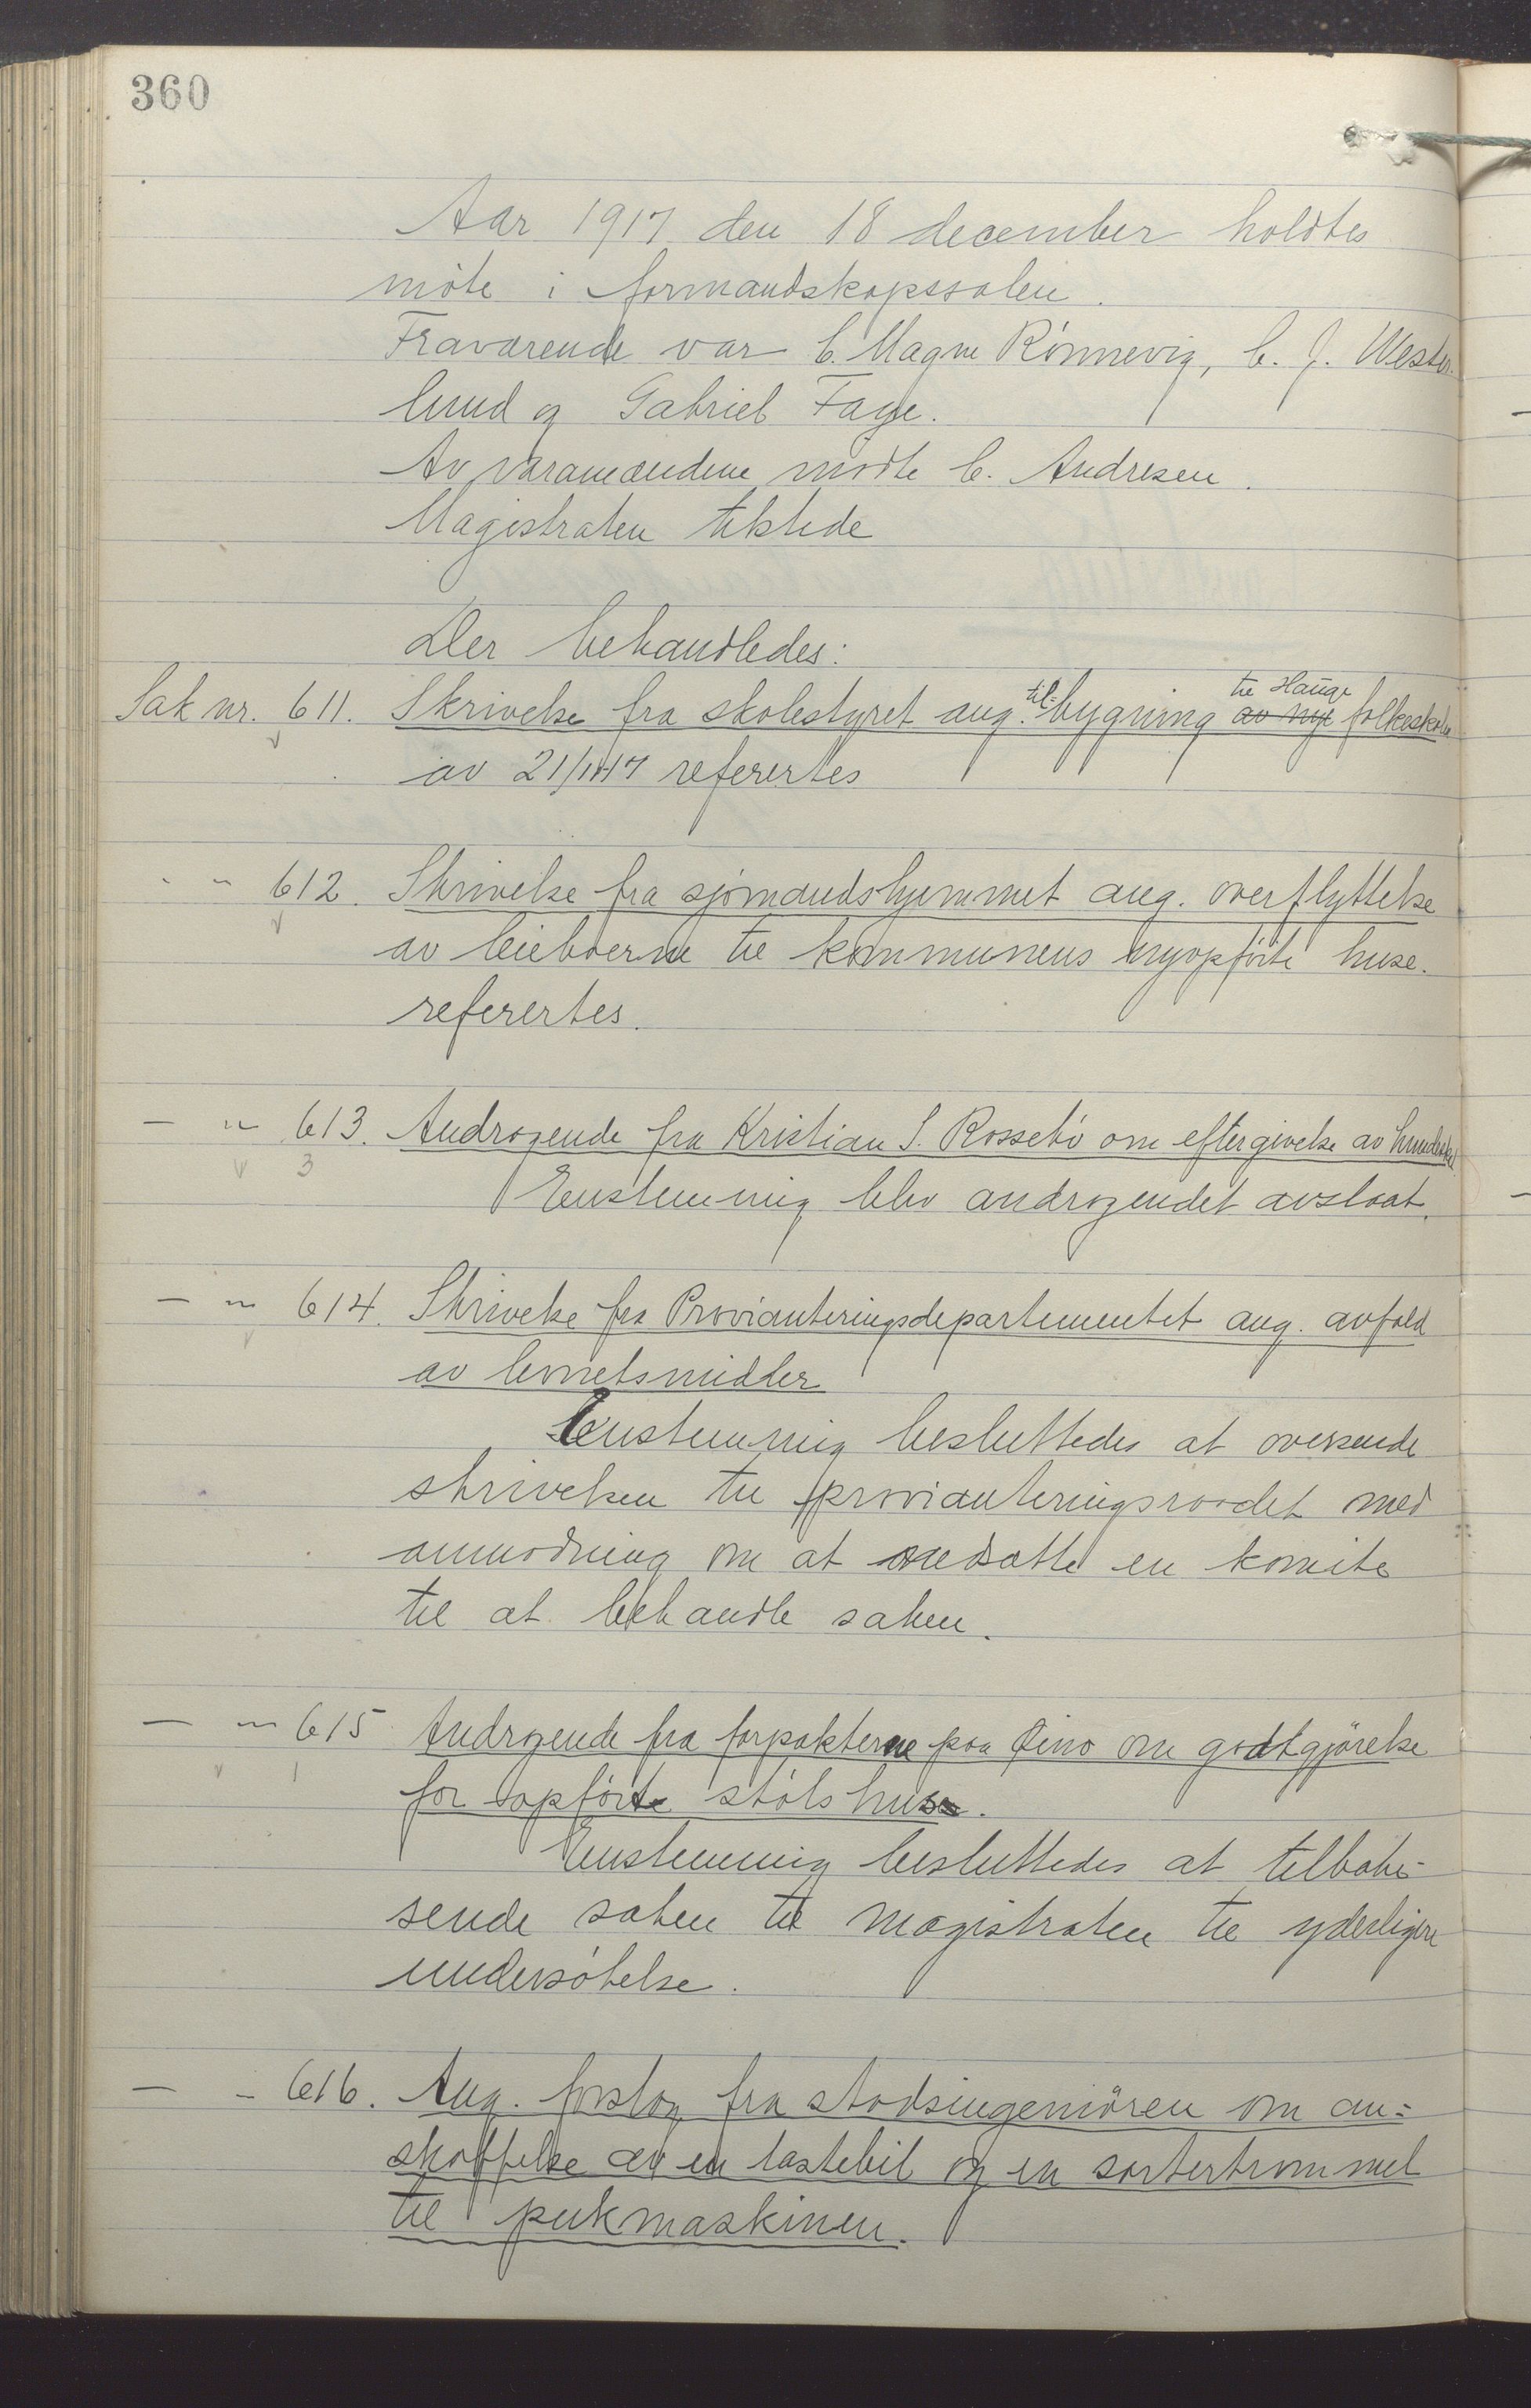 360
Aar 1917 den 18 december holdtes
möte i formandskapssalen.
Fraværende var C. Magne Rönnevig, C. J. Wester-
lund og Gabriel Fage.
Av varamændene mödte C. Andresen.
Magistraten tilstede
Der behandledes:
Sak nr. 611. Skrivelse fra skolestyret ang. til-bygning av nye til Hauge folkeskole
av 21/11-17 referertes
- " - 612. Skrivelse fra sjömandshjemmet ang. overflyttelse
av leieboerne til kommunens nyopförte huse.
referertes.
- " - 613. Andragende fra Kristian S. Rossebö om eftergivelse av hundeskat
3
Enstemmig blev andragendet avslaat.
- " - 614. Skrivelse fra Provianteringsdepartementet ang. avfald
av levnetsmidler
Enstemmig besluttedes at oversende
skrivelsen til provianteringsraadet med
anmodning om at nedsætte en komite
til at behandle saken.
- " - 615 Andragende fra forpakterne paa om godtgjörelse
1
for opförte stölshuse.
Enstemmig besluttedes at tilbake-
sende saken til magistraten til yderligere
undersökelse.
- " - 616. Ang. forslag fra stadsingeniören om an=
skaffelse av en lastebil og en sortertrommel
til pukmaskinen.